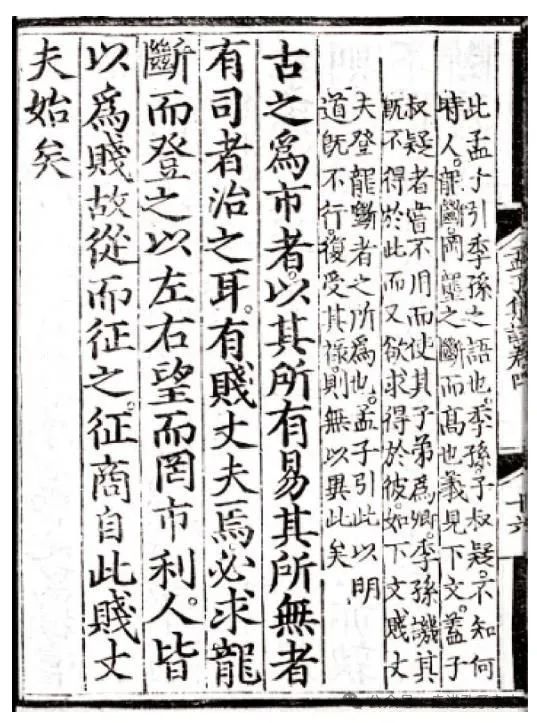 此孟子引季孫之語也。季孫。子叔疑。不知何
時人。龍斷。岡壟之斷而高也。義見下文。蓋子
叔疑者嘗不用而使其子弟爲卿。季孫譏其
旣不得於此而又欲求得於彼。如下文賤丈
夫登龍斷者之所爲也。孟子引此以明
道旣不行。復受其祿。則無以異此矣
古之爲市者。以其所有易其所無者
有司者治之耳。有賤丈夫焉。必求龍
斷而登之。以左右望而罔市利。人皆
以爲賤。故從而征之。征商自此賤丈
夫始矣
十六